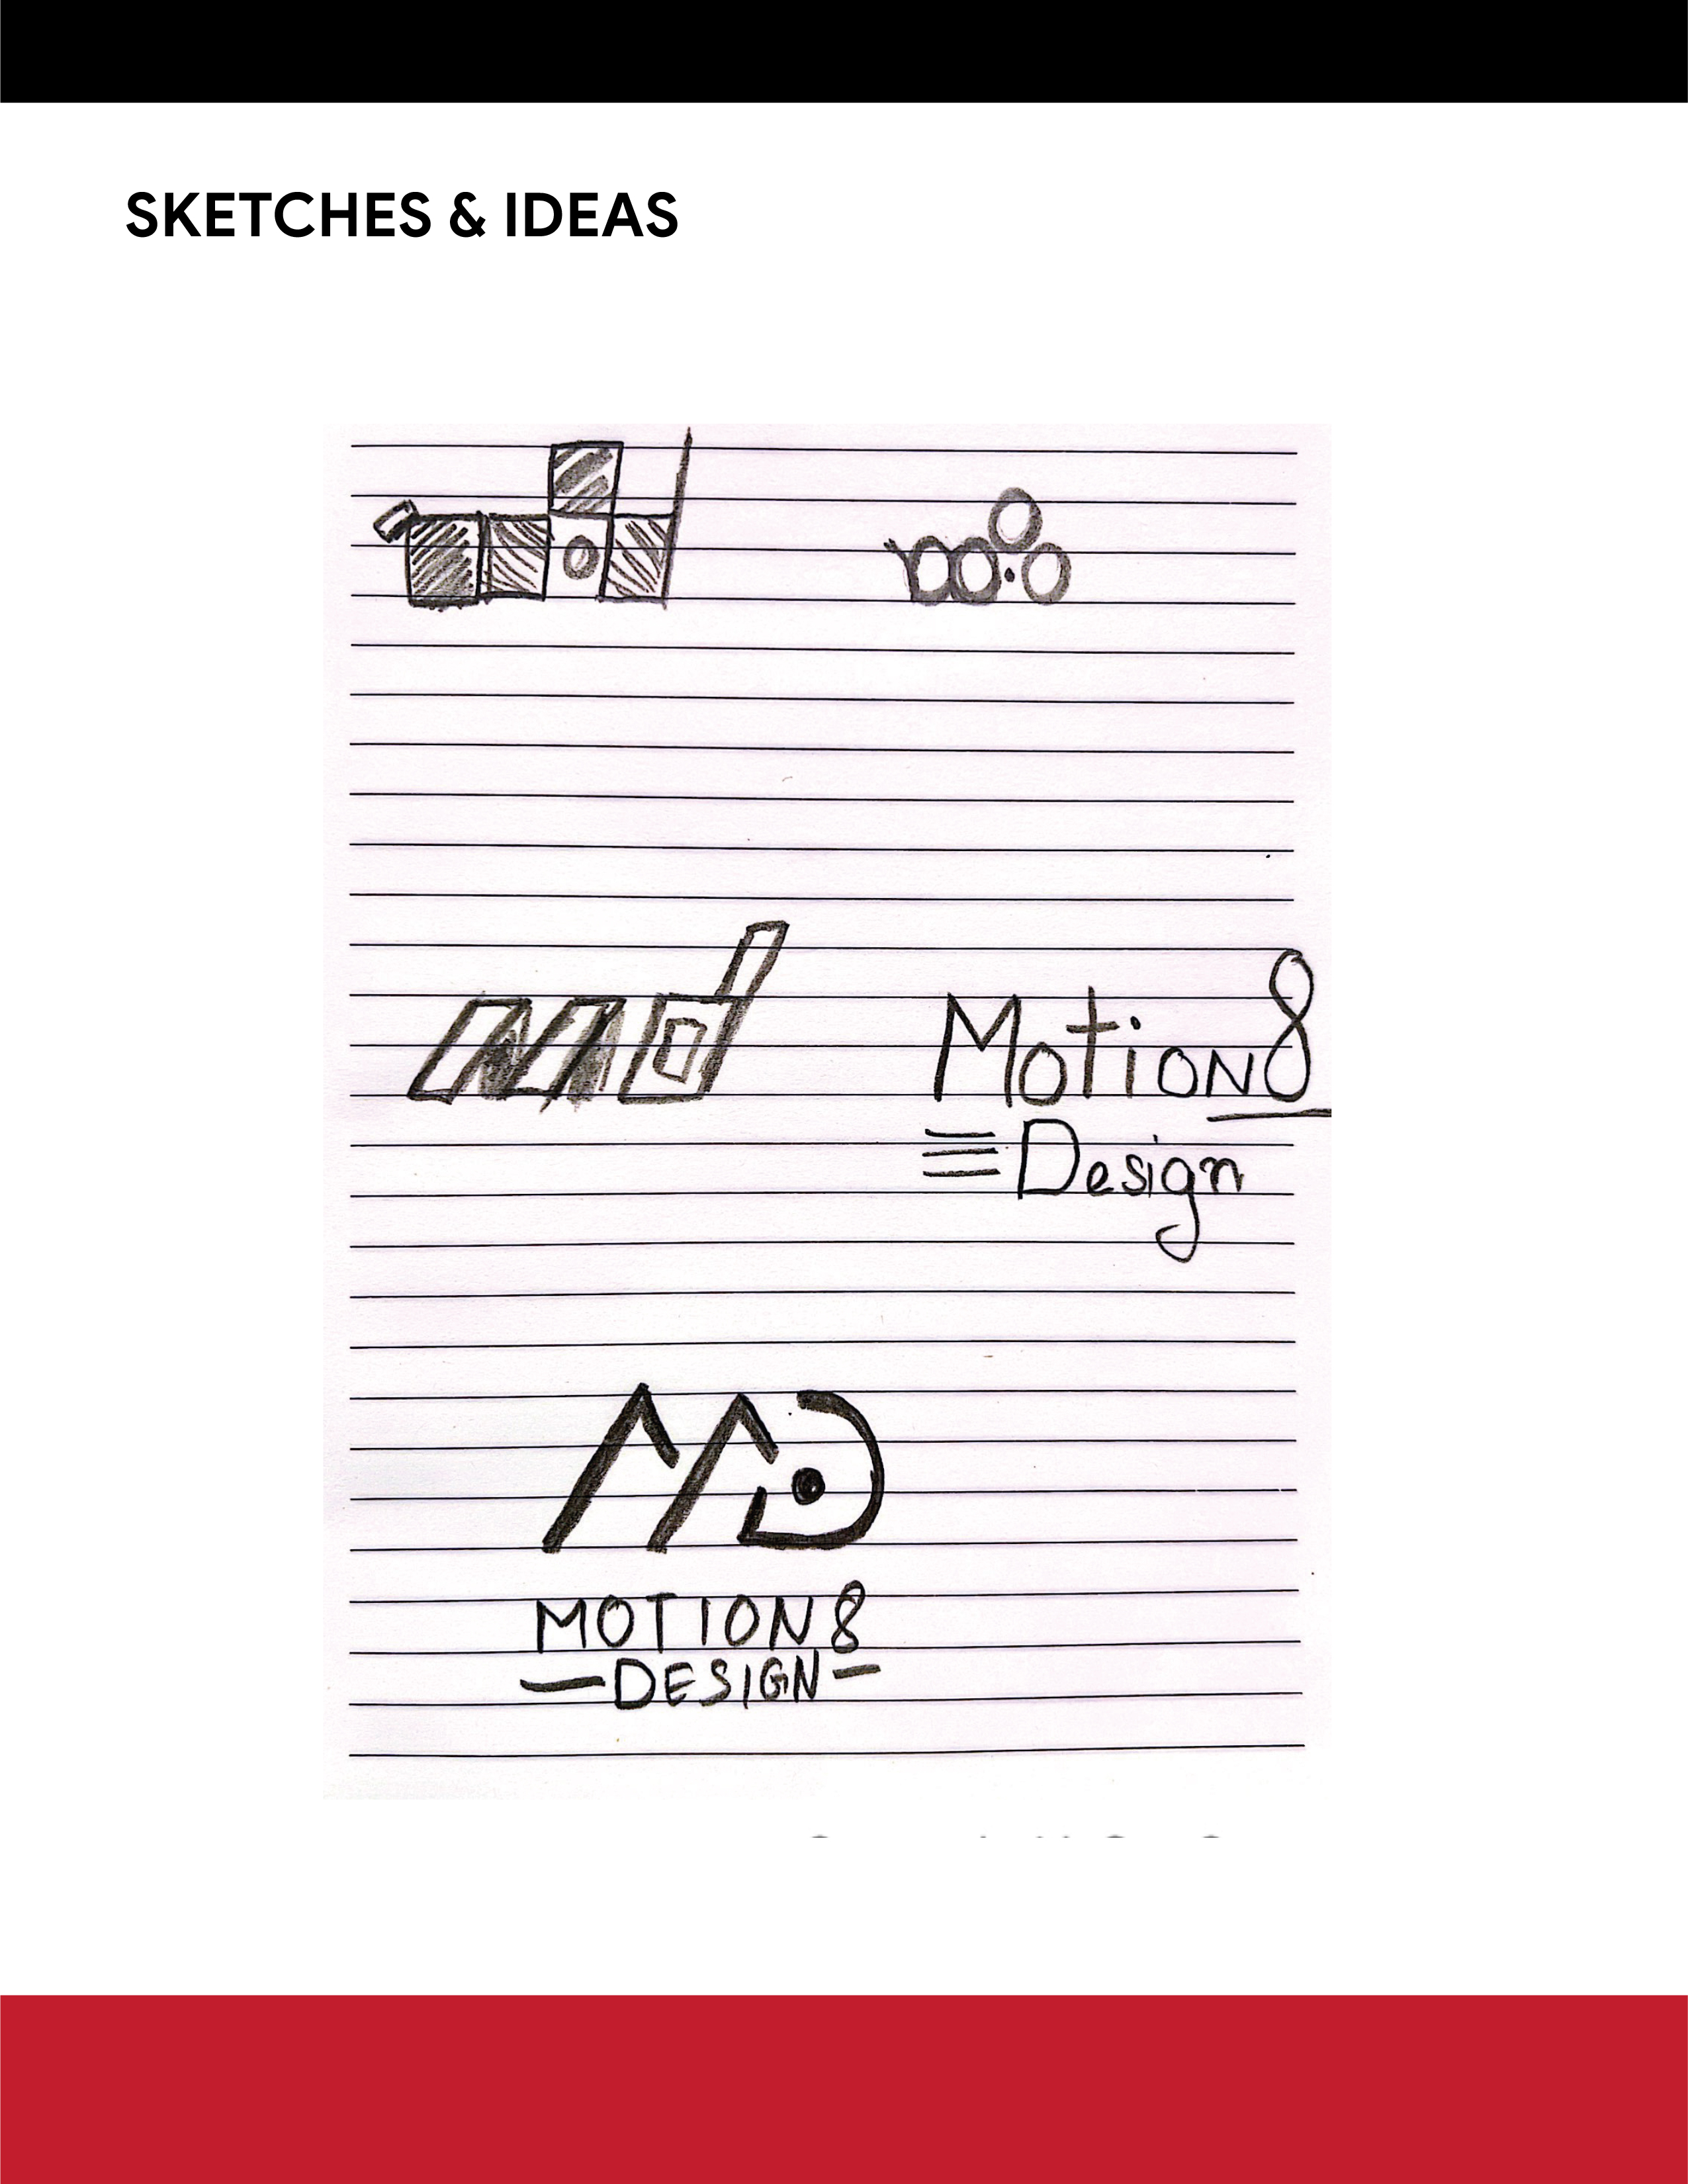 SKETCHES & IDEAS
md
Motion8
Design
MD
MOTION8
DESIGN